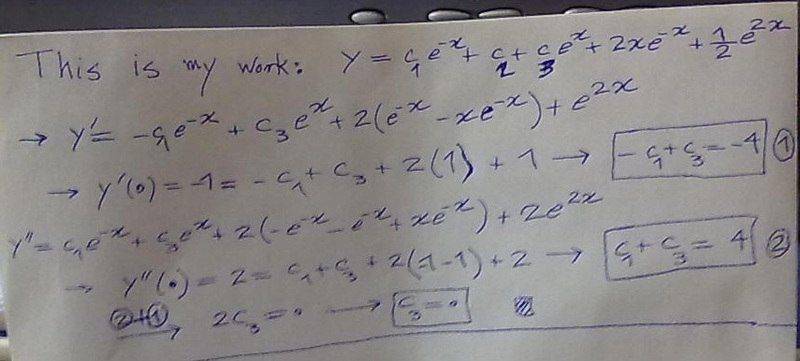 This is my work: y = c₁e⁻ˣ + c₂ + c₃eˣ + 2xe⁻ˣ + 1/2 e²ˣ
→ y' = -c₁e⁻ˣ + c₃eˣ + 2(e⁻ˣ - xe⁻ˣ) + e²ˣ
→ y'(0) = -1 = -c₁ + c₃ + 2(1) + 1 → -c₁ + c₃ = -4 ①
y'' = c₁e⁻ˣ + c₃eˣ + 2(-e⁻ˣ - e⁻ˣ + xe⁻ˣ) + 2e²ˣ
→ y''(0) = 2 = c₁ + c₃ + 2(-1-1) + 2 → c₁ + c₃ = 4 ②
②+① → 2c₃ = 0 → c₃ = 0